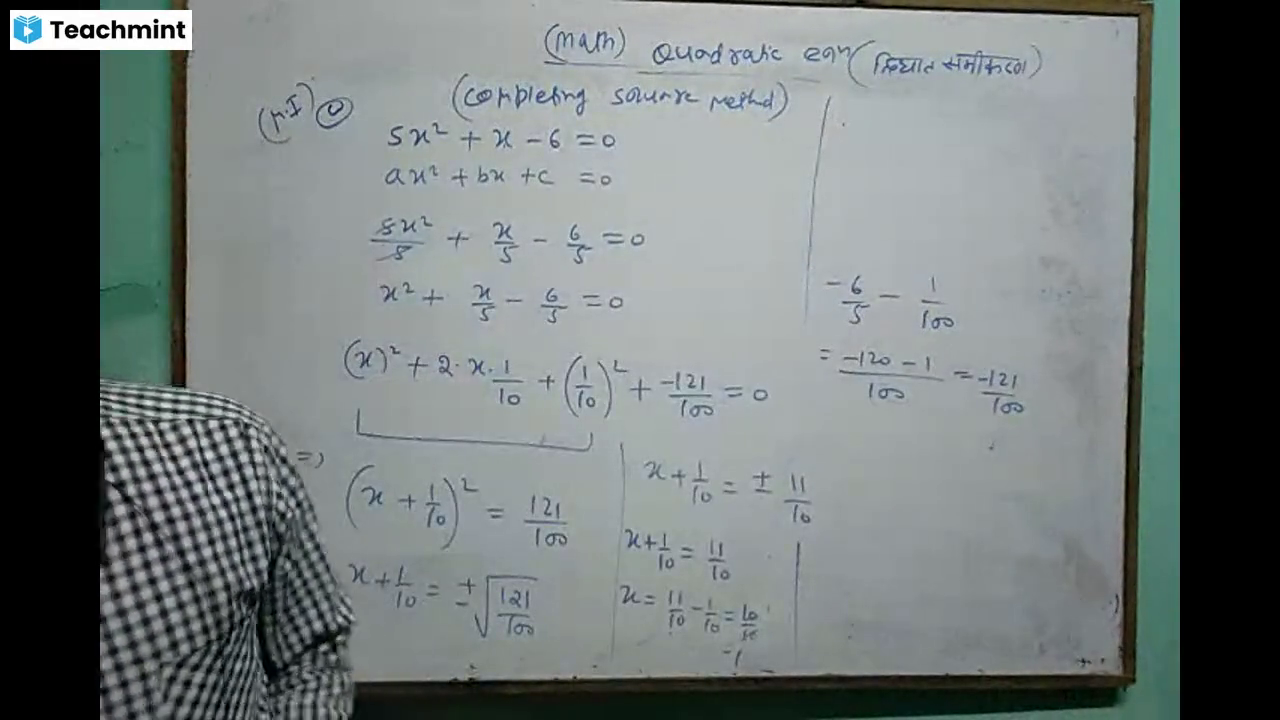 Teachmint
(Math) Quadratic eqn (द्विघात समीकरण)
(Completing square method)
5x² + x - 6 = 0
ax² + bx + c = 0
5x²/5 + x/5 - 6/5 = 0
x² + x/5 - 6/5 = 0
(x)² + 2·x·1/10 + (1/10)² + -121/100 = 0
=>
(x + 1/10)² = 121/100
x + 1/10 = ±√121/100
x + 1/10 = ± 11/10
x + 1/10 = 11/10
x = 11/10 - 1/10 = 10/10
-6/5 - 1/100
= -120 - 1/100 = -121/100